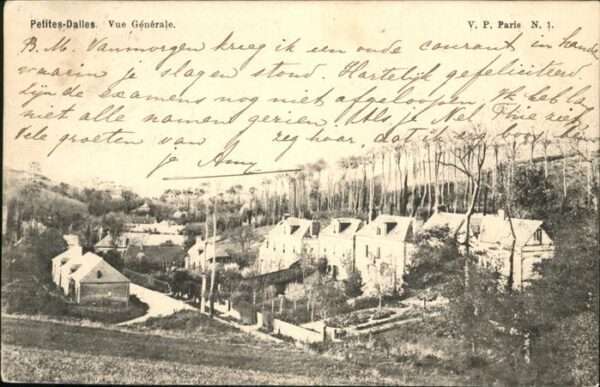 Petites-Dalles. Vue Générale.
V. P. Paris N. 1.
B. M. Vanmorgen kreeg ik een oude courant in hande
waarin je slagen stond. Hartelijk gefeliciteerd.
zijn de examens nog niet afgeloopen. Ik heb lag
niet alle namen gezien. Als je Nel Thie ziet
Vele groeten van zeg haar, dat ik erg
je Amy